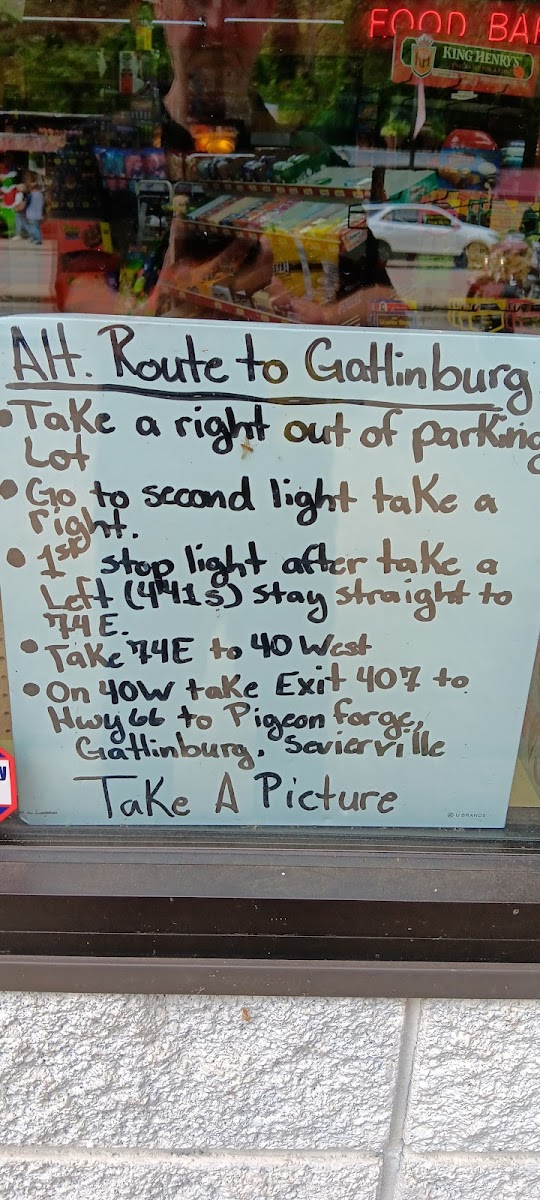 FOOD BAR
KING HENRY'S
Alt. Route to Gatlinburg
• Take a right out of parking
Lot
• Go to second light take a
right.
• 1st stop light after take a
Left (441s) stay straight to
74E.
• Take 74E to 40 West
• On 40W take Exit 407 to
Hwy 66 to Pigeon forge,
Gatlinburg, Sevierville
Take A Picture
U BRANDS